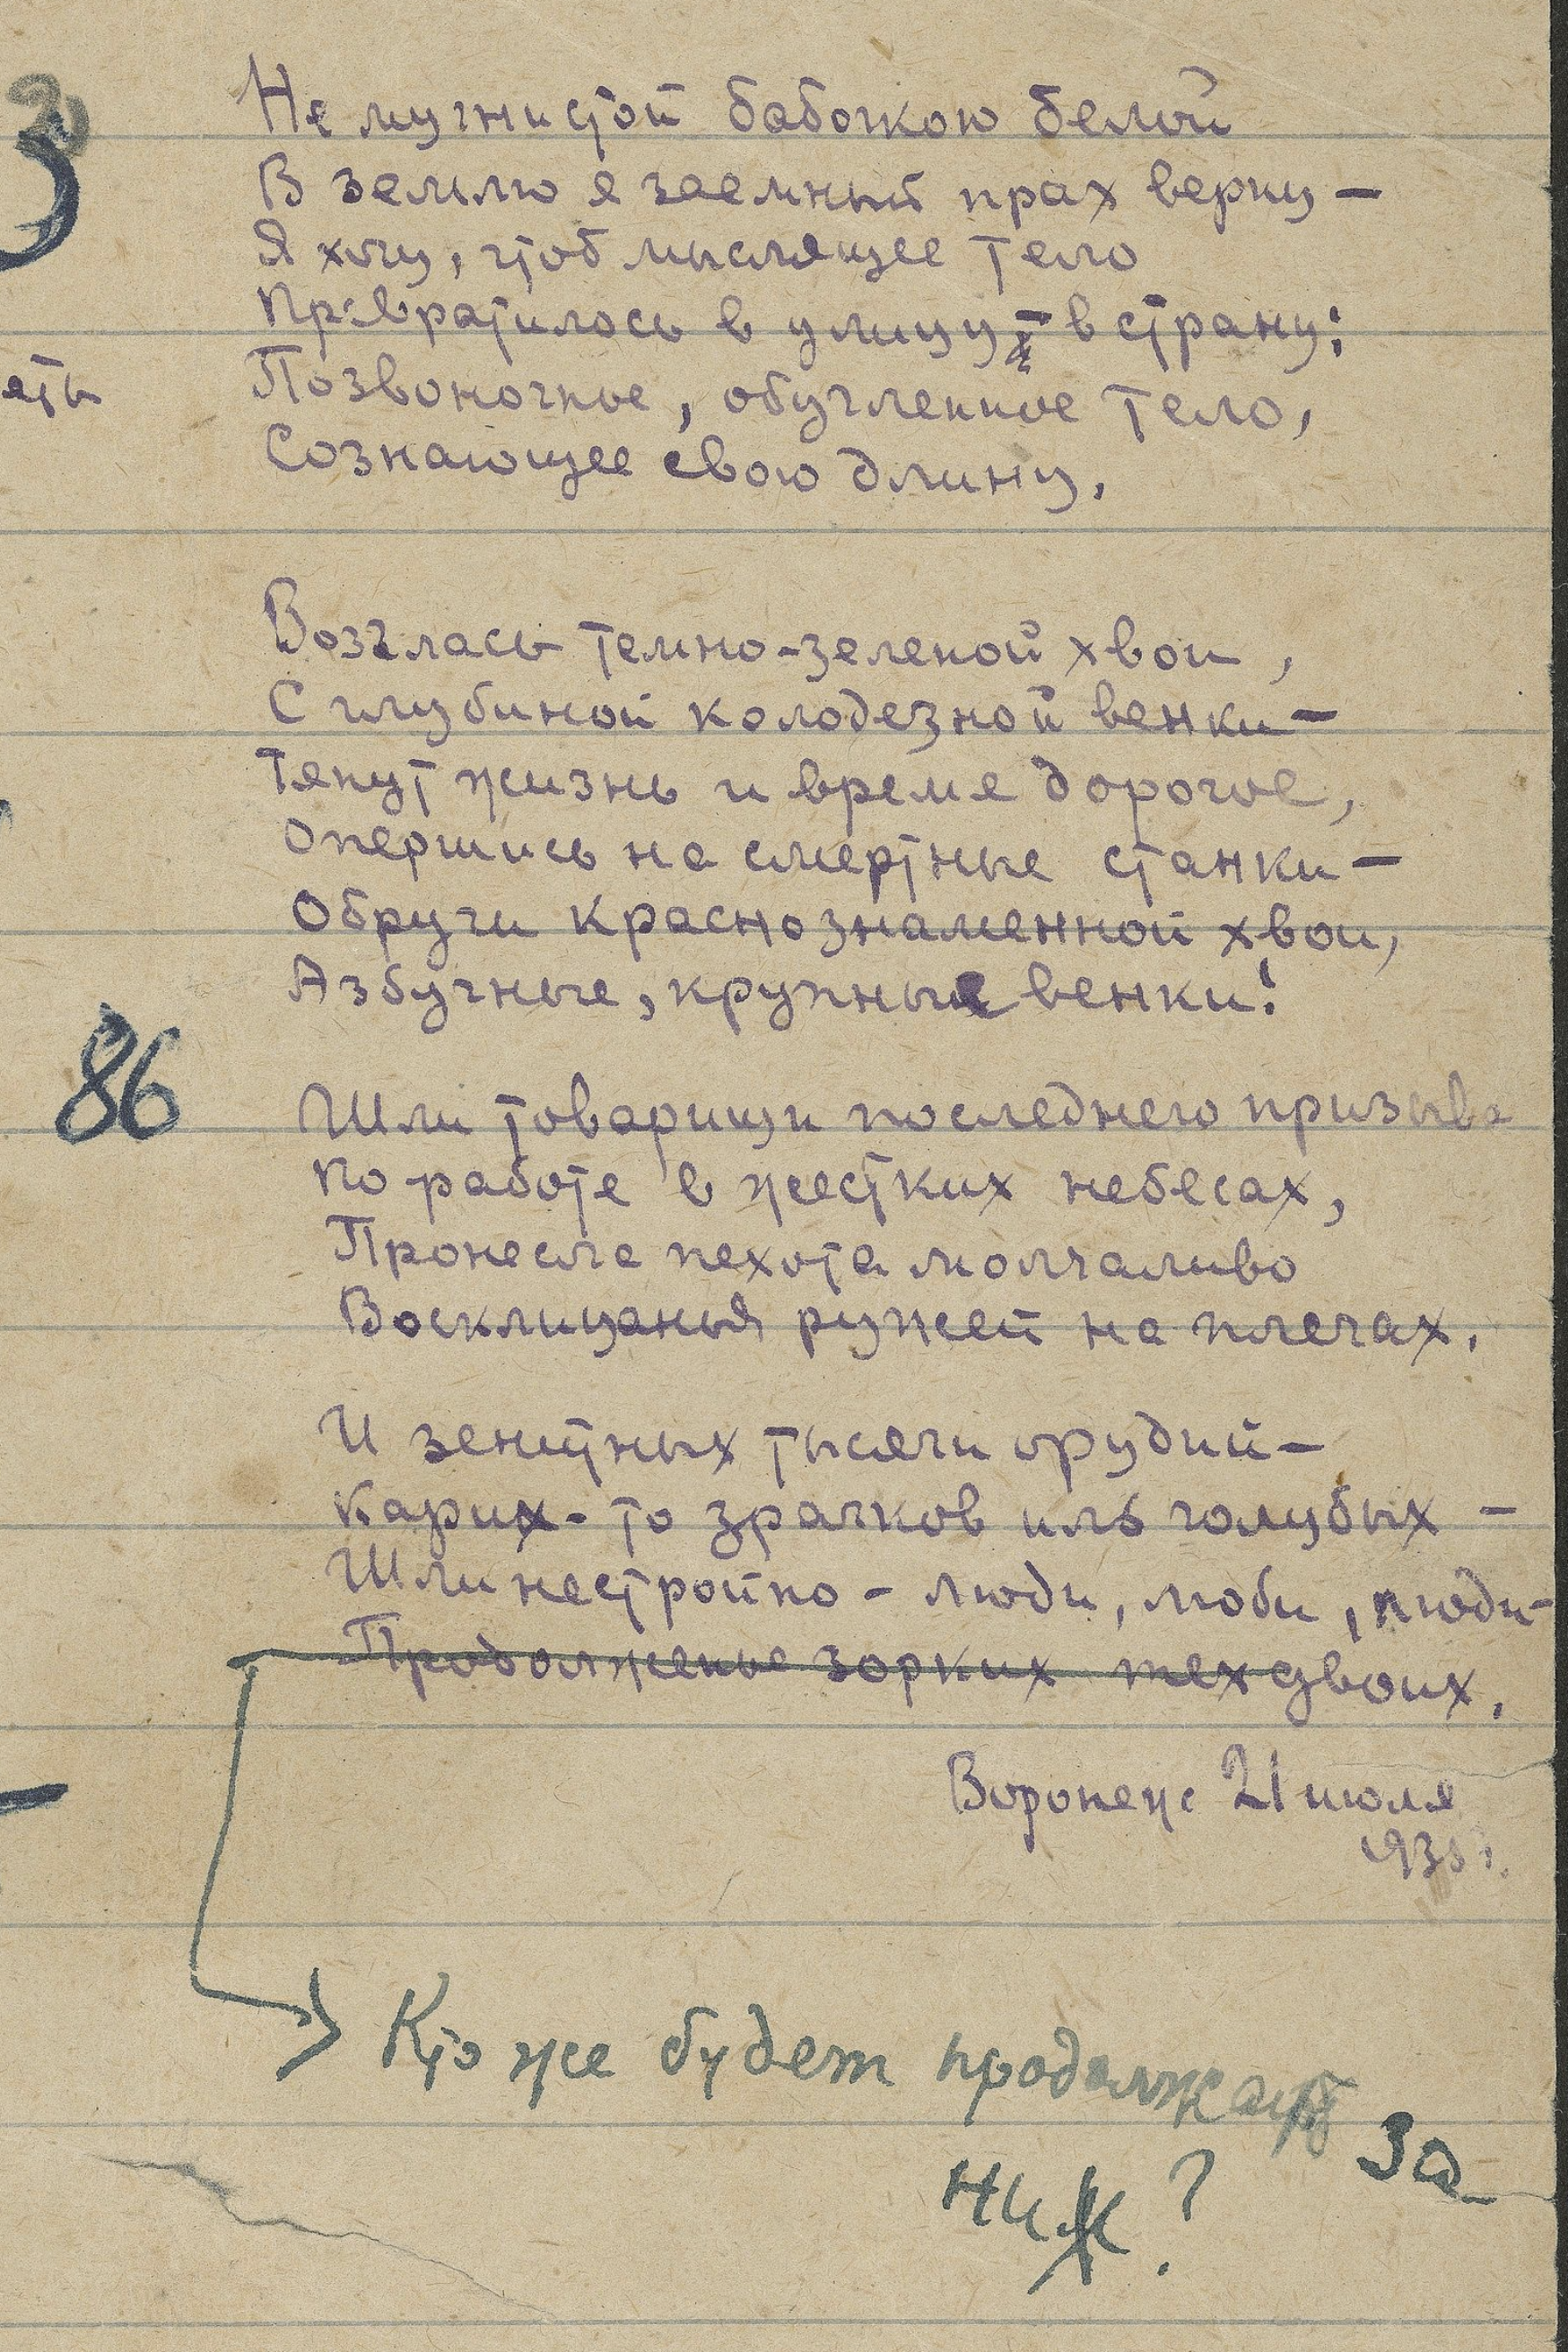 Не мучнистой бабочкою белой
В землю я заемный прах верну —
Я хочу, чтоб мыслящее тело
Превратилось в улицу, в страну:
ять
Позвоночное, обугленное тело,
Сознающее свою длину.
Возгласы темно-зеленой хвои,
С глубиной колодезной венки —
Тянут жизнь и время дорогое,
Опершись на смертные станки —
Обручи краснознаменной хвои,
Азбучные, крупные венки!
86
Шли товарищи последнего призыва
По работе в жестких небесах,
Пронесла пехота молчаливо
Восклицанья ружей на плечах.
И зенитных тысячи орудий —
Карих-то зрачков иль голубых —
Шли нестройно — люди, люди, люди —
Продолженье зорких тех двоих.
Воронеж 21 июля
193
Кто же будет продолжать
За
них?